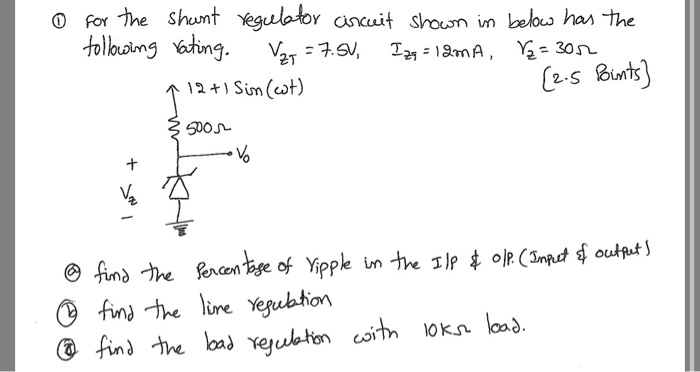 ① For the shunt regulator circuit shown in below has the
following rating. VZT = 7.5V, IZT = 12mA, rz = 30Ω
[2.5 Points]
12+1 Sin(ωt)
500Ω
Vo
+
Vz
-
ⓐ find the Percentage of ripple in the I/P & o/P. (Input & output)
ⓑ find the line regulation
ⓓ find the load regulation with 10KΩ load.